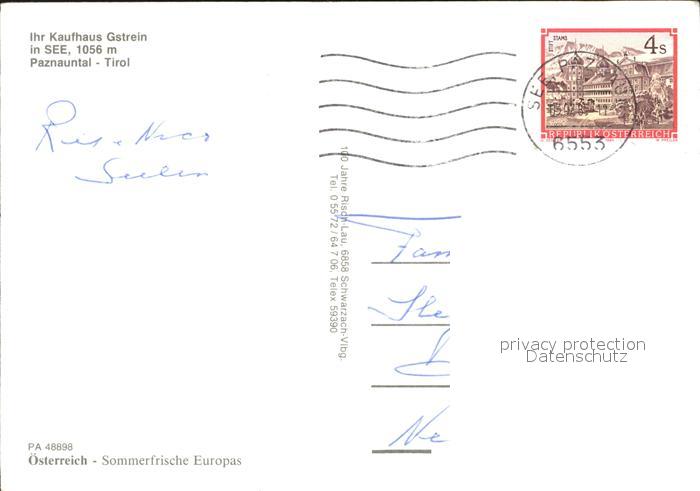 Ihr Kaufhaus Gstrein
in SEE, 1056 m
Paznauntal - Tirol
STIFT STAMS
4 S
REPUBLIK ÖSTERREICH
SEE PAZNAUN
6553
100 Jahre Risch-Lau, 6858 Schwarzach-Vlbg.
Tel. 0 55 72 / 64 7 06, Telex 59390
Fam
Ne
privacy protection
Datenschutz
PA 48898
Österreich - Sommerfrische Europas